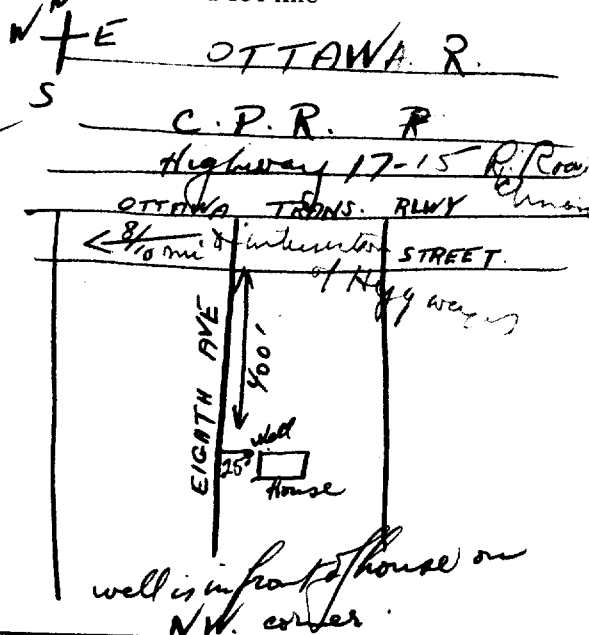 N
W E
S
OTTAWA R.
C. P. R. R
Highway 17-15
OTTAWA TRANS. RLWY
8/10 mi to intersection STREET.
of Highways
EIGATH AVE
400'
25' Well
House
well is in front of house on
NW. corner.